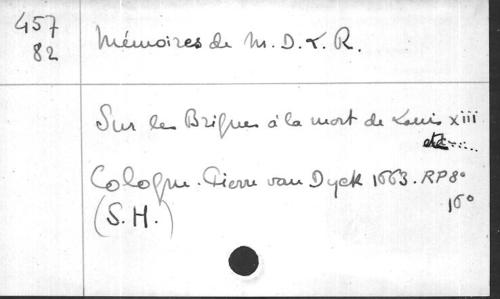 457
82
Mémoires de M. D. L. R.
Sur les Brigues à la mort de Louis xiii
etc.....
Cologne. Pierre van Dyck 1663. RP 8°
16°
(S. H.)